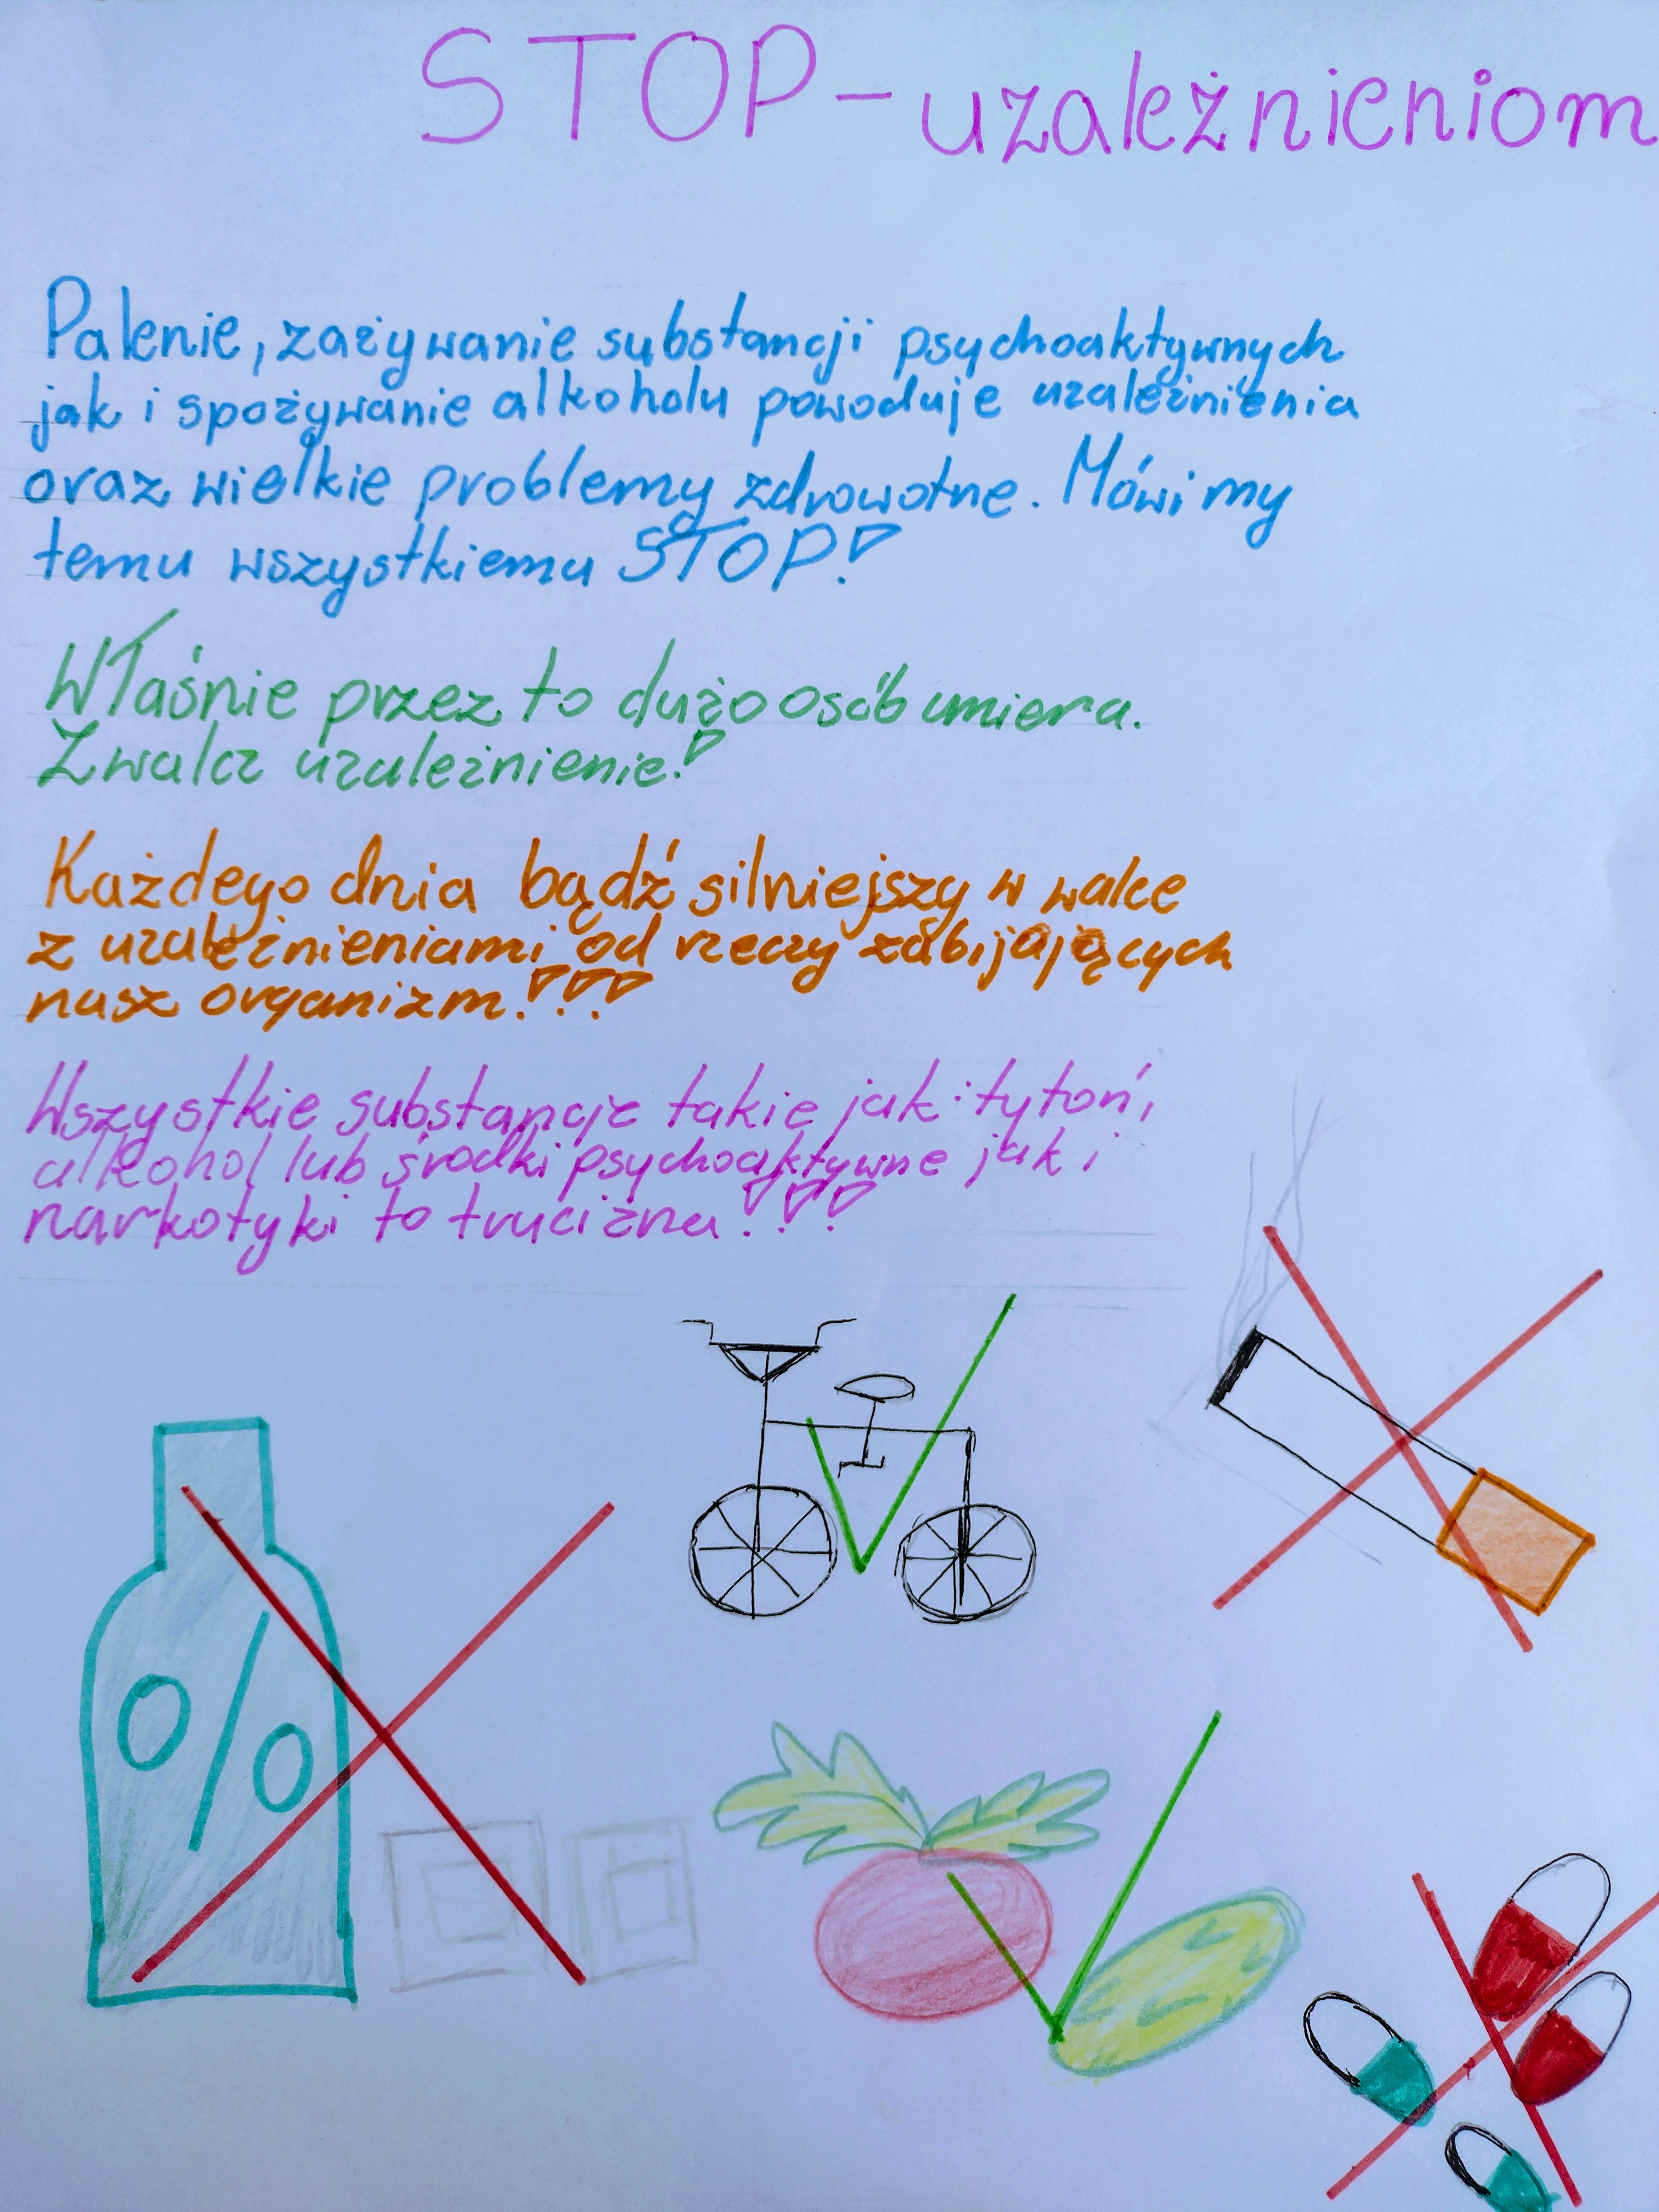 STOP - uzależnieniom
Palenie, zażywanie substancji psychoaktywnych
jak i spożywanie alkoholu powoduje uzależnienia
oraz wielkie problemy zdrowotne. Mówimy
temu wszystkiemu STOP!
Właśnie przez to dużo osób umiera.
Zwalcz uzależnienie!
Każdego dnia bądź silniejszy w walce
z uzależnieniami od rzeczy zabijających
nasz organizm!!!
Wszystkie substancje takie jak: tytoń,
alkohol lub środki psychoaktywne jak i
narkotyki to trucizna!!!
%